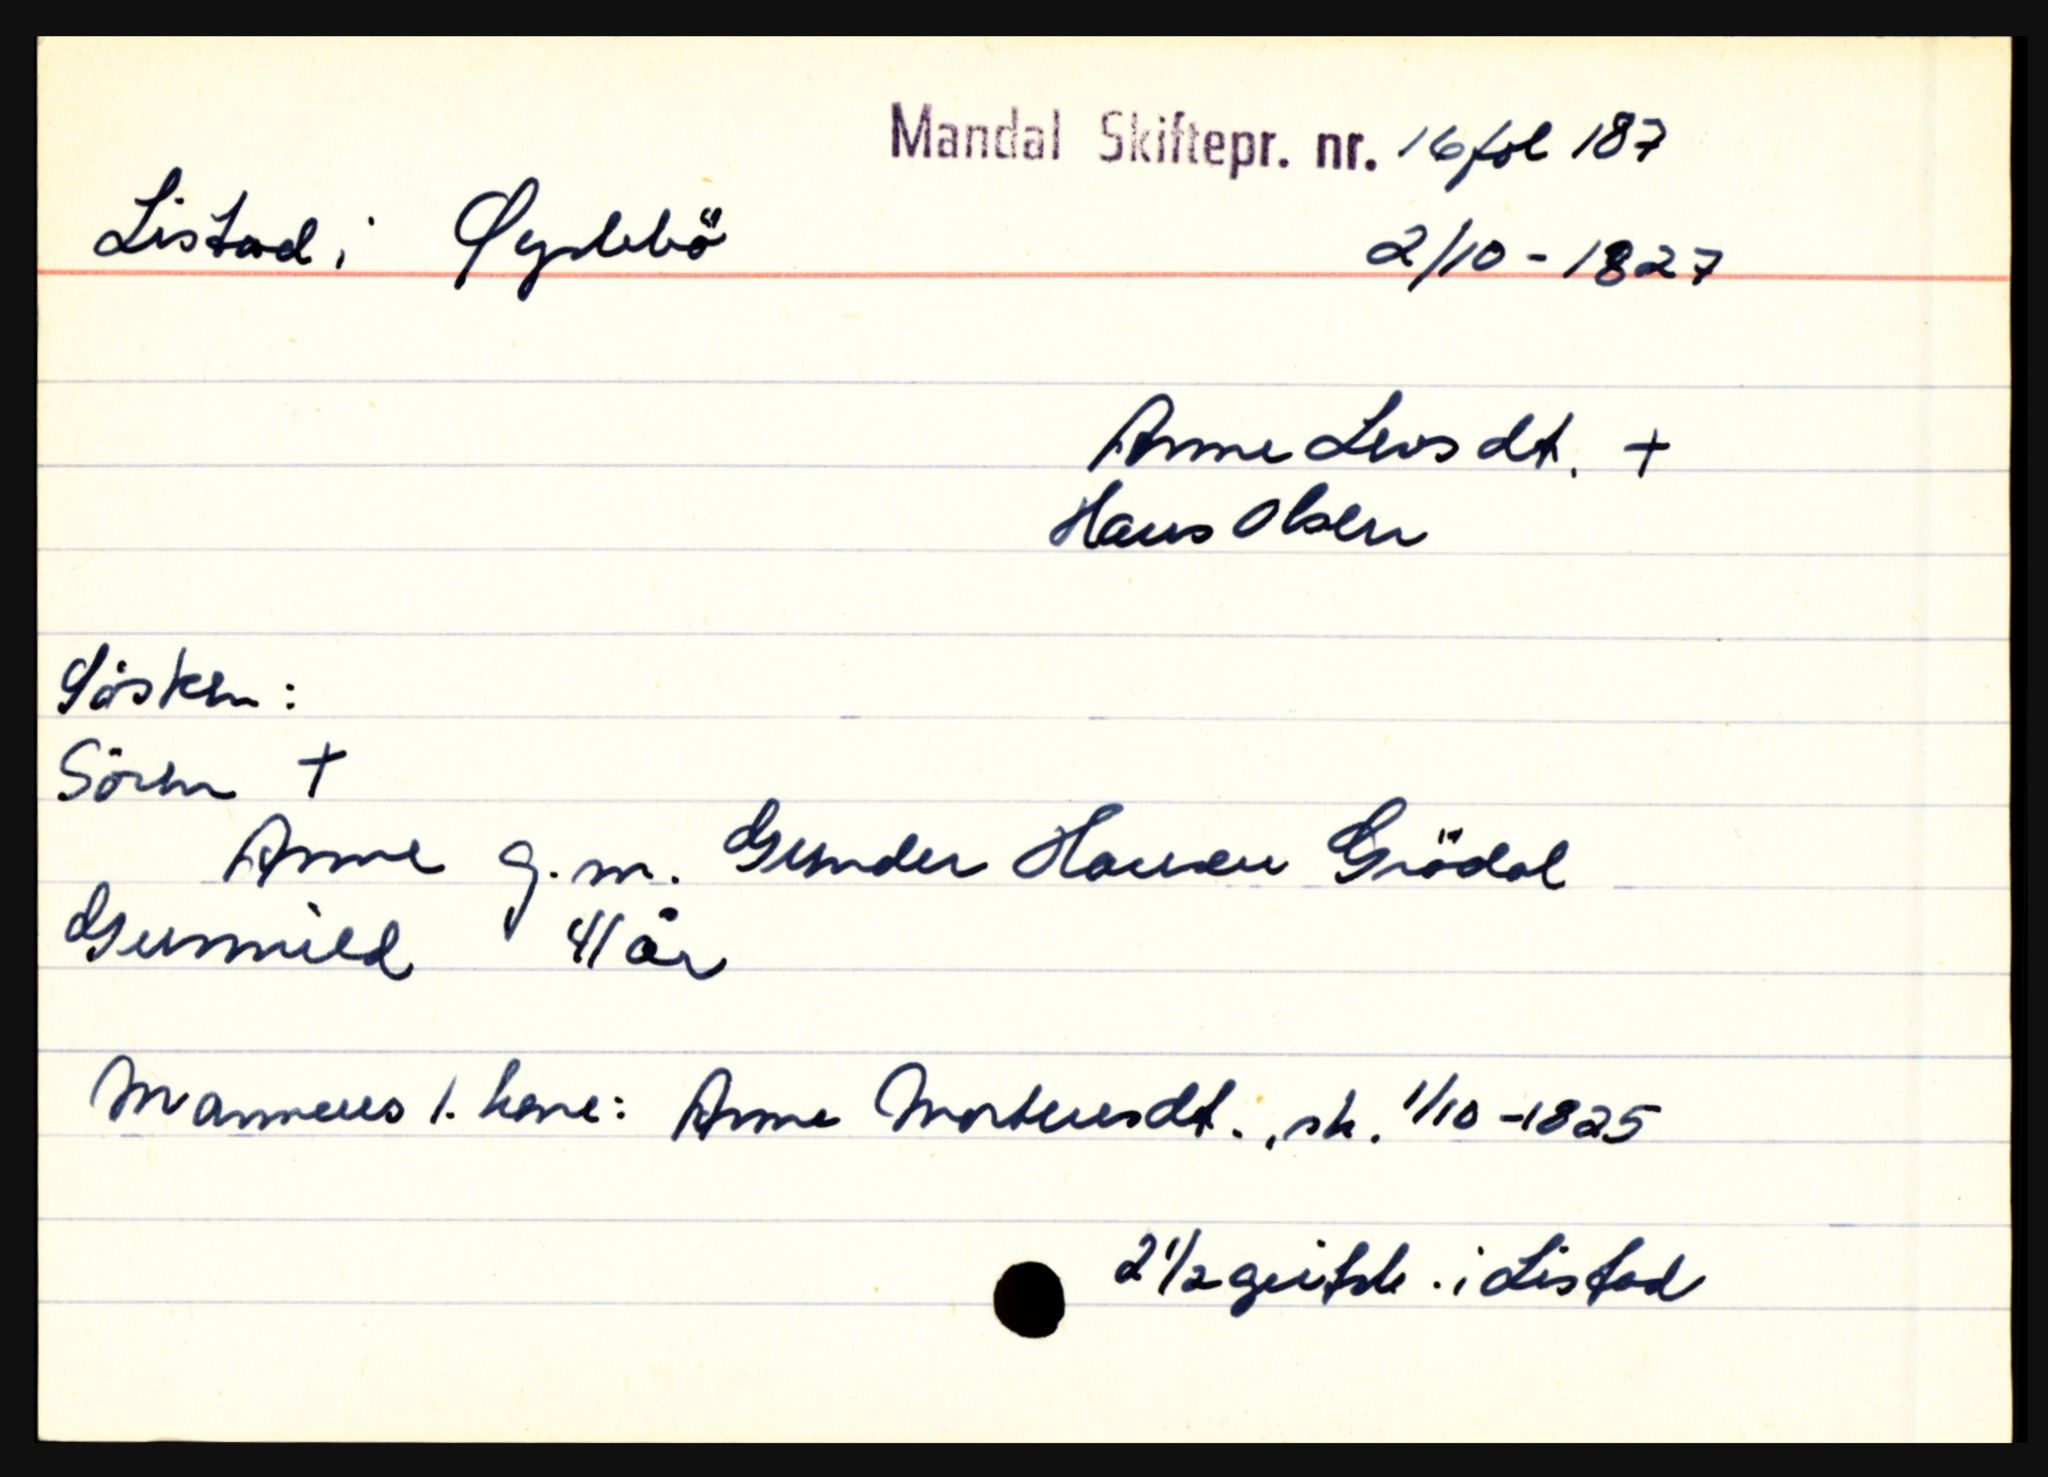 Mandal Skiftepr. nr. 16 fol 187
Listad i Øyslebö 2/10 - 1827
Anne Larsdt. +
Hans Olsen
Sösken:
Sören +
Anne g.m. Gunder Hansen Grödal
Gunnild 41 år
Mannens 1. kone: Anne Mortensdt., sk. 1/10 - 1825
2 1/2 i Listad